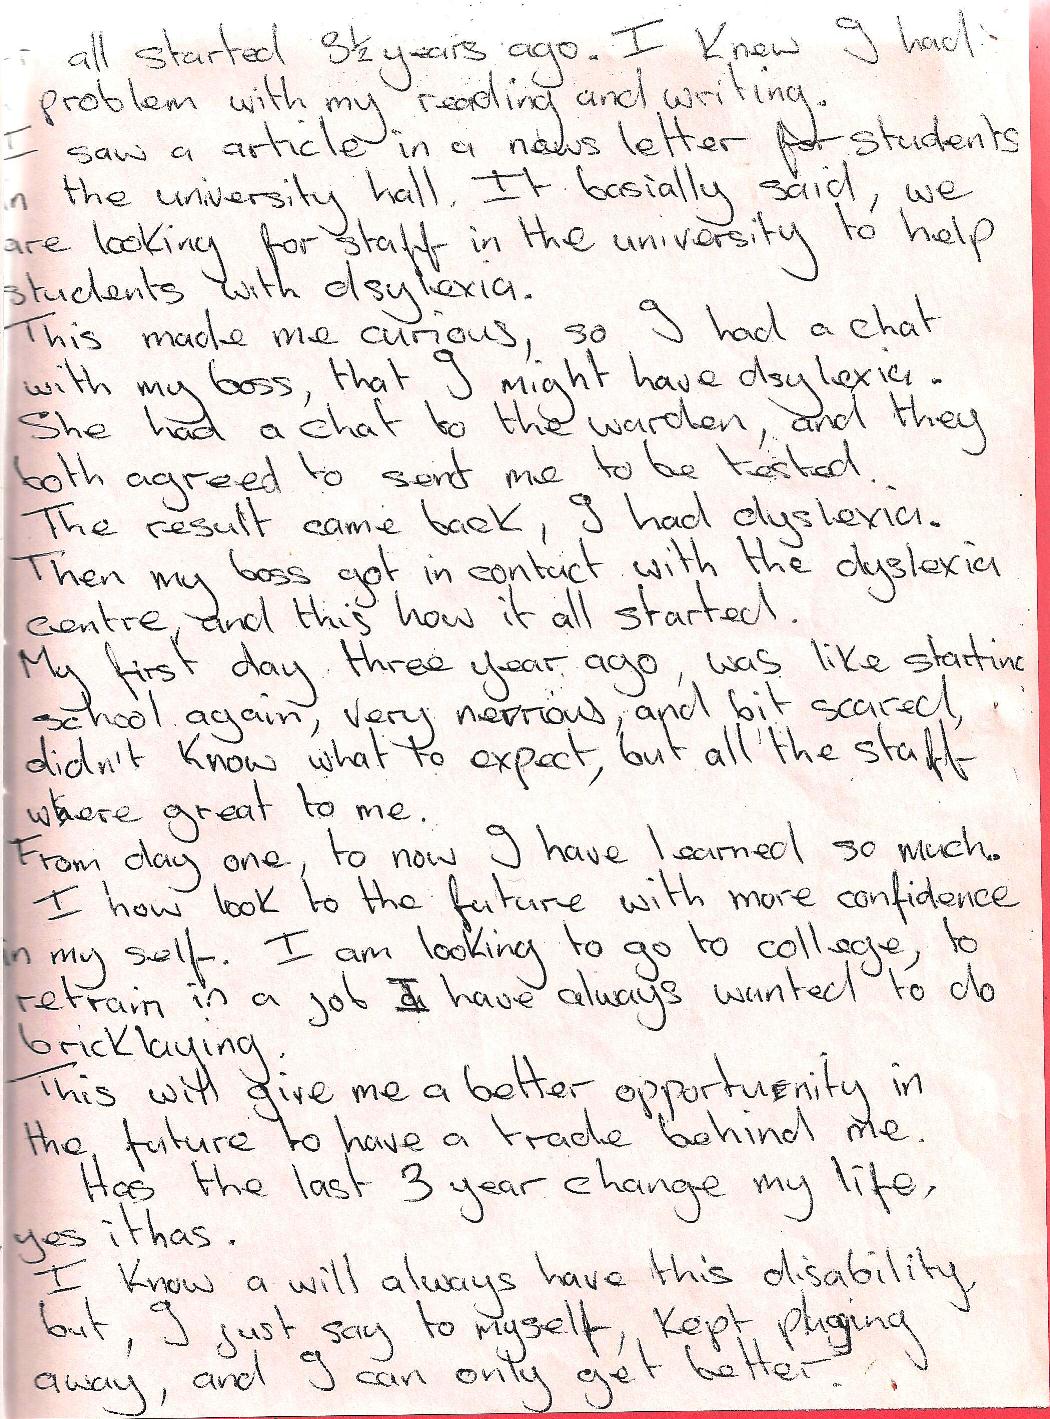 all started 3½ years ago. I Know I had
problem with my reading and writing.
I saw a article in a news letter for students
in the university hall. It basially said, we
are looking for staff in the university to help
students with dsylexia.
This made me curious, so I had a chat
with my boss, that I might have dsylexia.
She had a chat to the warden, and they
both agreed to sent me to be tested.
The result came back, I had dyslexia.
Then my boss got in contact with the dyslexia
centre, and this how it all started.
My first day three year ago, was like starting
school again, very nervious, and bit scared,
didn't know what to expect, but all the staff
where great to me.
From day one, to now I have learned so much.
I now look to the future with more confidence
in my self. I am looking to go to college, to
retrain in a job I have always wanted to do
bricklaying.
This will give me a better opportuenity in
the future to have a trade behind me.
Has the last 3 year change my life,
yes ithas.
I Know a will always have this disability,
but, I just say to myself, kept pluging
away, and I can only get better.